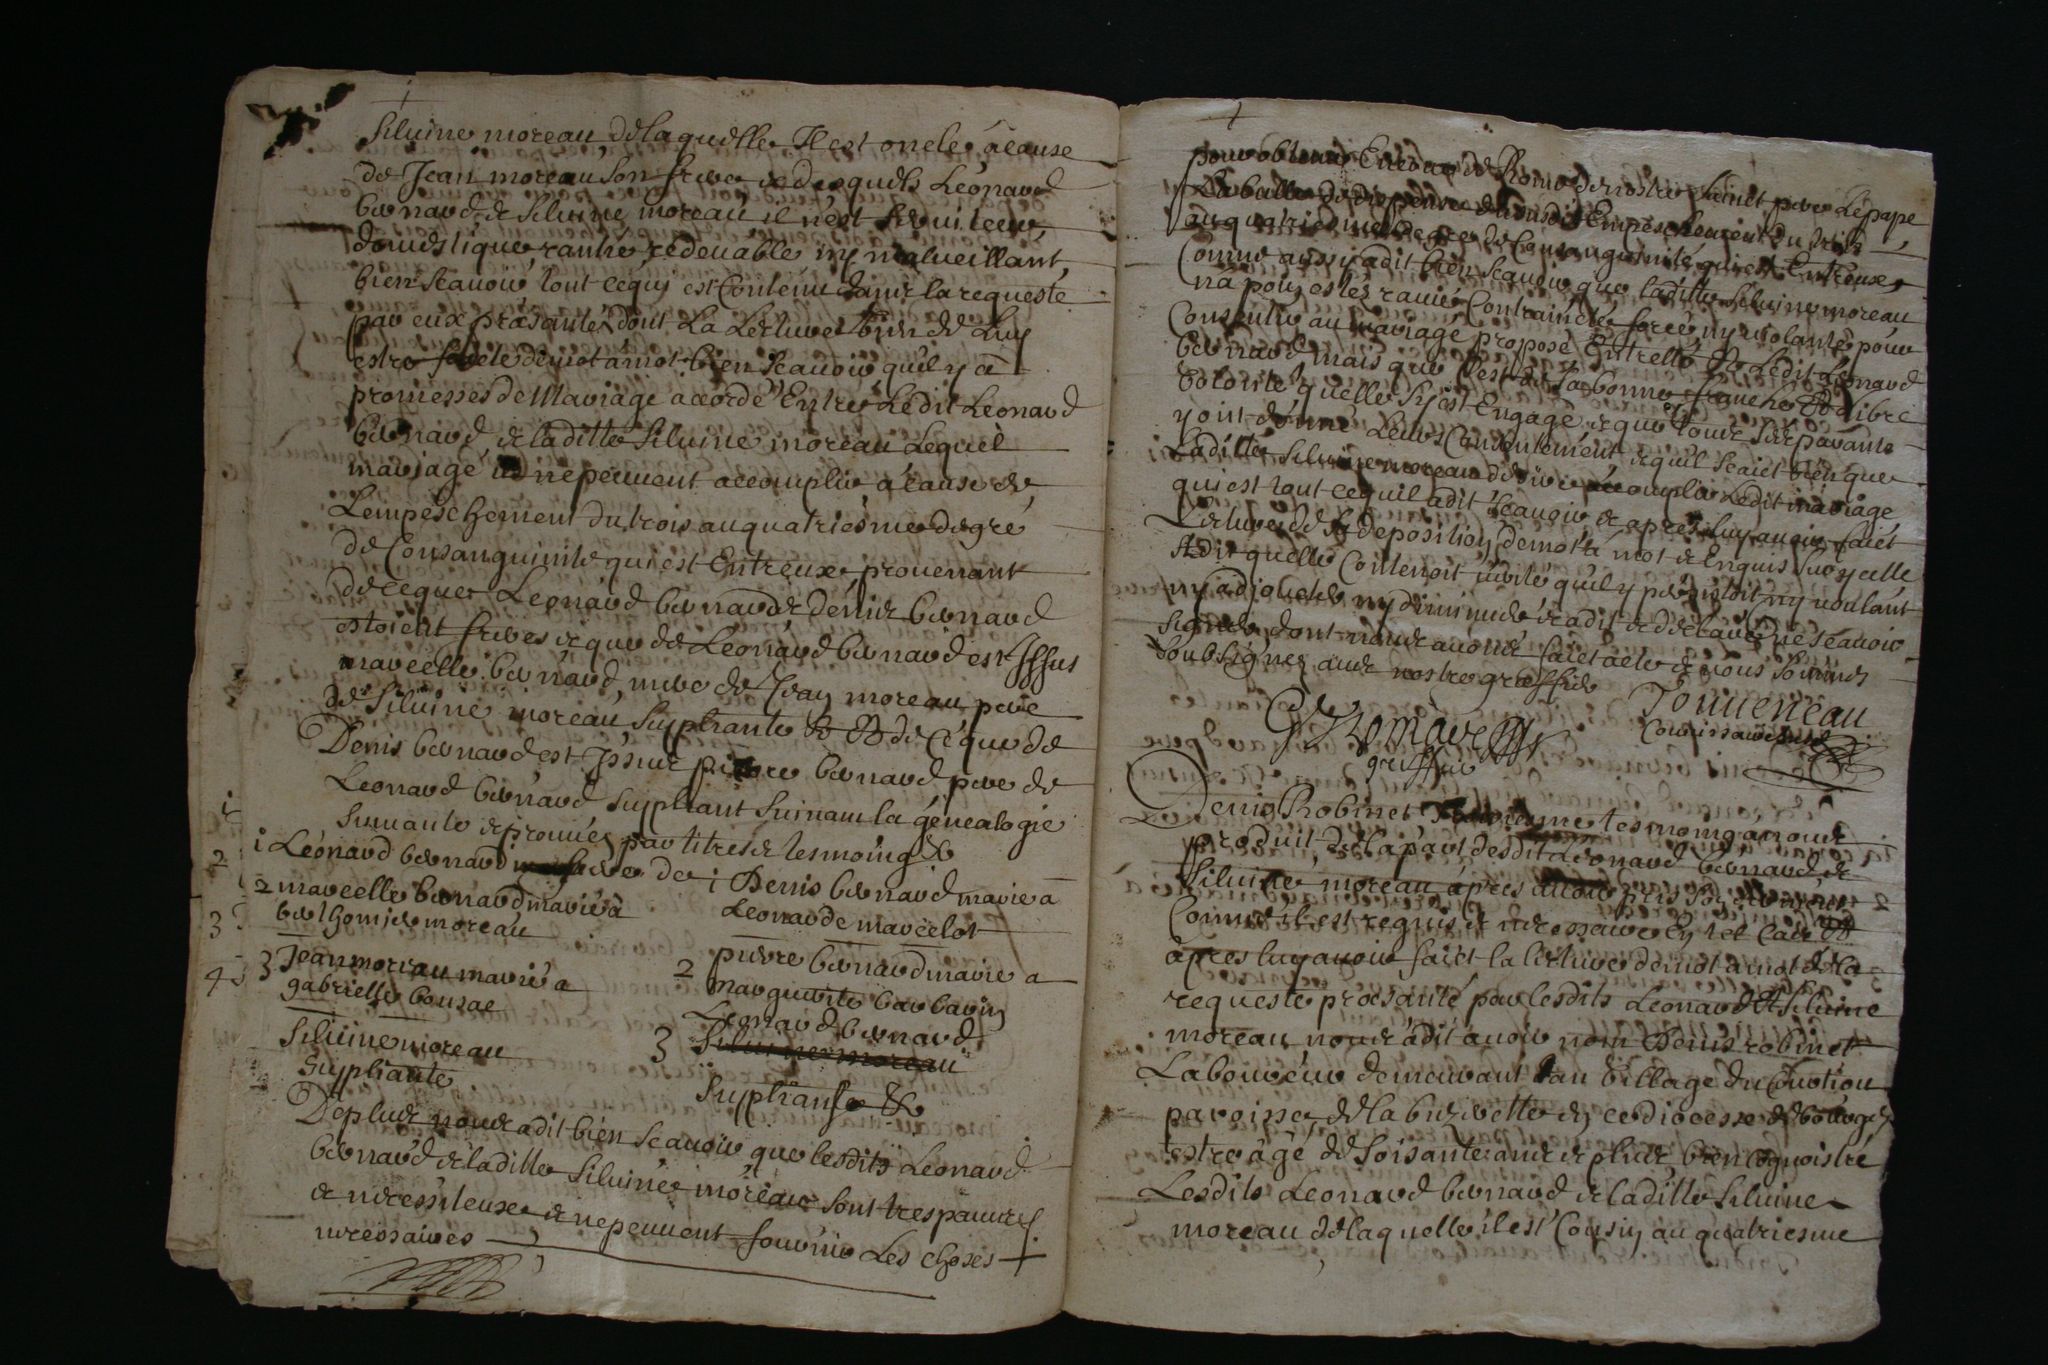 Siluine moreau de laquelle Il est oncle a cause
de Jean moreau son frere et desquels Léonard
bernard et Siluine moreau il n'est Seruiteur
domestique, rantié redeuable ny malueillant
bien scauoir tout ce quy est Contenu dans la requeste
par eux presantée dont La Lecture vien de Luy
estre faicte de mot a mot bien scauoir qu'il y a
promesses de Mariage acordé Entre Ledit Leonard
bernard et laditte Siluine moreau Lequel
mariage ne peuuent accomplir a cause de
Lempeschement du trois au quatriesme degré
de Consanguinité qui est Entreux prouenant
de ce que Leonard bernard et Denis bernard
estoient freres et que de Leonard bernard est Issus
marcelle bernard, mere de Jean moreau pere
de Siluine moreau Supliante et de ce que de
Denis bernard est Issus pierre bernard pere de
Leonard bernard Supliant Suiuant la genealogie
Suiuante et prouuée par titres et tesmoings
i Léonard bernard frere de i Denis bernard marie a
Leonarde marcelot
2 marcelle bernard marié a
berthomier moreau
2 pierre bernard marie a
marguerite barbarin
3 Jean moreau marié a
gabrielle bonsac
3 Leonard bernard
Siluine moreau
Supliant
Siluine moreau
Supliante
De plus nous a dit bien scauoir que lesdits Leonard
bernard et laditte Siluine moreau sont tres pauures
et necessiteux et ne peuuent fournir Les choses
necessaires
pour obtenir En cour de Rome de nostre Sainct pere Le pape
La bulle de dispence dudit Empeschement du trois
au quatriesme degré de Consanguinité qui est Entreux
Comme aussy a dit bien scauoir que laditte Siluine moreau
na poin estez rauie Contraincte forcé ny uiolantée pour
Consentir au mariage proposé Entrelle et Ledit Leonard
bernard mais que c'est de sa bonne franche et libre
volonté quelle s'y est Engagé et que tous ses parants
y ont donné Leurs Consentement et qu'il scait bien que
Laditte Siluine moreau desire accomplir Ledit mariage
qui est tout ce quil a dit scauoir et apres luy auoir faict
Lecture de sa deposition de mot a mot et Enquis sur ycelle
A dit quelle Contenoit verité qu'il y persistoit ny voulant
ny adiouter ny diminuer et a dit et declaré ne scauoir
signer dont nous auons faict acte et nous sommes
soubsignez auec nostre greffier
Tourteneau
Commissaire
greffier
Denis Robinet Troisiesme tesmoing a nous
produit de la part desdit Leonard bernard et
Siluine moreau apres auoir pris son serment
Comme il est requis et necessaire En tel Cas et
apres luy auoir faict la lecture de mot a mot de la
requeste presanté par lesdits Leonard et Siluine
moreau nous a dit auoir nom Denis robinet
Laboureur demeurant au village du
paroisse de la buxerette en ce diocesse de bourges
estre agé de soisante ans et plus bien cognoistre
Lesdits Leonard bernard et laditte Siluine
moreau de laquelle il est Cousin au quatriesme